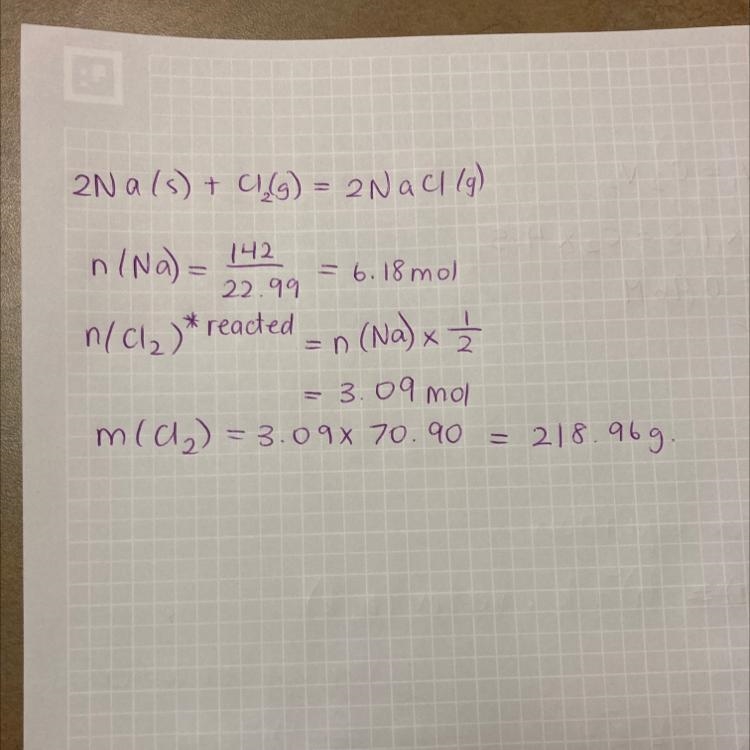 2Na(s) + Cl₂(g) = 2NaCl(g)
n(Na) = 142/22.99 = 6.18 mol
n(Cl₂)*reacted = n(Na) × 1/2
= 3.09 mol
m(Cl₂) = 3.09 × 70.90 = 218.96g.